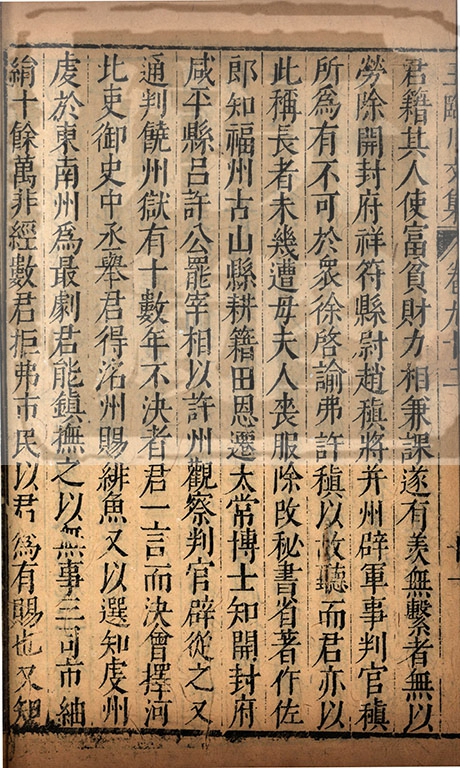 王臨川文集 卷九十二
君籍其人使富貧財力相兼課遂有羡無繫者無以
勞除開封府祥符縣尉趙稹將并州辟軍事判官稹
所爲有不可於衆徐啓諭弗許稹以故聽而君亦以
此稱長者未幾遭毋夫人喪服除改秘書省著作佐
郎知福州古山縣耕籍田恩遷太常博士知開封府
咸平縣呂許公罷宰相以許州觀察判官辟從之又
通判饒州獄有十數年不決者君一言而決會擇河
北吏御史中丞舉君得洺州賜緋魚又以選知虔州
虔於東南州爲最劇君能鎮撫之以無事三司市紬
絹十餘萬非經數君拒弗市民以君爲有賜也又知